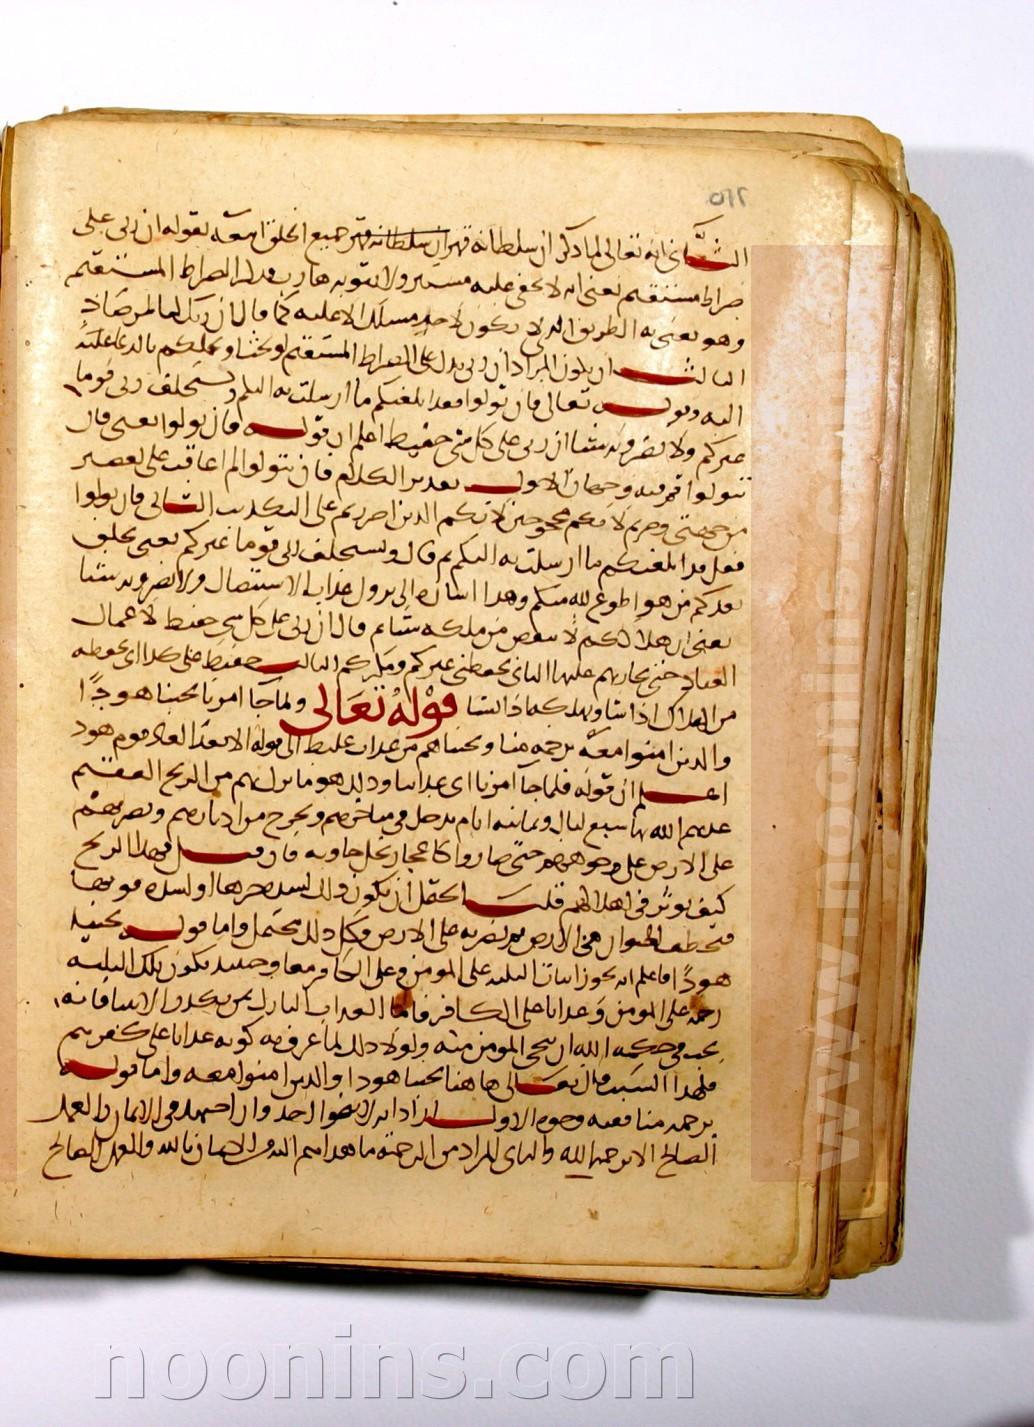 ٥٦٦
الثاني انه تعالى لما ذكر ان سلطانه قهر ان سلطانه قهر جميع الخلق اتبعه بقوله ان ربي على
صراط مستقيم يعني انه لا يخفى عليه مستتر ولا يفوته هارب فذكر الصراط المستقيم
وهو يعني به الطريق الذي لا يكون لاحد مسلك الا عليه كما قال ان ربك لبالمرصاد
الثالث ان يكون المراد ان ربي يدل على الصراط المستقيم او يحث او يحملكم بالدعا عليه
اليه وقوله تعالى فان تولوا فقد ابلغتكم ما ارسلت به اليكم ويستخلف ربي قوما
غيركم ولا تضرونه شيئا ان ربي على كل شي حفيظ اعلم ان قوله فان تولوا يعني فان
تتولوا ثم فيه وجهان الاول تقدير الكلام فان تتولوا لم اعاقب على تقصير
من جهتي وصرتم لانكم محجوجين لانكم الذين اصررتم على التكذيب الثاني فان تولوا
فقل قد ابلغتكم ما ارسلت به اليكم ثم قال ويستخلف ربي قوما غيركم يعني يخلق
بعدكم من هو اطوع لله منكم وهذا اشارة الى نزول عذاب الاستئصال ولا تضرونه شيئا
يعني ان هلاككم لا ينقص من ملكه شيئا ثم قال ان ربي على كل شي حفيظ لاعمال
العباد حتى يجازيهم عليها الثاني يحفظني عن شركم ومكركم الثالث حفيظ على كل شي يحفظه
من الهلاك اذا شا ويهلكه اذا شا قوله تعالى ولما جا امرنا نجينا هودا
والذين امنوا معه برحمة منا ونجيناهم من عذاب غليظ الى قوله الا بعدا لعاد قوم هود
اعلم ان قوله فلما جا امرنا اي عذابنا وذلك هو ما نزل بهم من الريح العقيم
عذبهم الله بها سبع ليال وثمانية ايام تدخل في مناخرهم وتخرج من ادبارهم وتصرعهم
على الارض على وجوههم حتى صاروا كاعجاز نخل خاوية فان قيل فهذا الريح
كيف يوثر في اهلاكهم قلنا يحتمل ان يكون ذلك لشدة حرها او لشدة قوتها
فتخطف الحيوان من الارض ثم تضربه على الارض فكل ذلك محتمل واما قوله نجينا
هودا فاعلم انه يجوز اتيان البلية على المومن وعلى الكافر معا وحينئذ تكون تلك البلية
رحمة على المومن وعذابا على الكافر فاما العذاب النازل بمن يكذب الانبيا فانه
يجب في حكمة الله ان ينجي المومن منه ولولا ذلك لما عرف كونه عذابا على كفرهم
فلهذا السبب قال تعالى هاهنا نجينا هودا والذين امنوا معه واما قوله
برحمة منا ففيه وجوه الاول اراد انه لا ينجو احد وان اجتهد في الايمان والعمل
الصالح الا برحمة الله والثاني المراد من الرحمة ما هداهم اليه من الايمان بالله والعمل الصالح
www.noonins.com
noonins.com